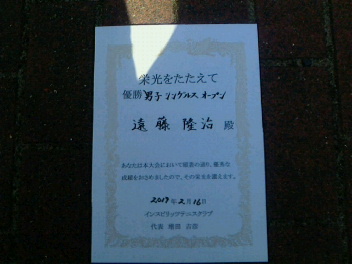 栄光をたたえて
優勝 男子シングルス オープン
遠藤 隆治 殿
あなたは本大会において頭書の通り、優秀な
成績をおさめましたので、その栄光を讃えます。
2017年2月16日
インスピリッツテニスクラブ
代表